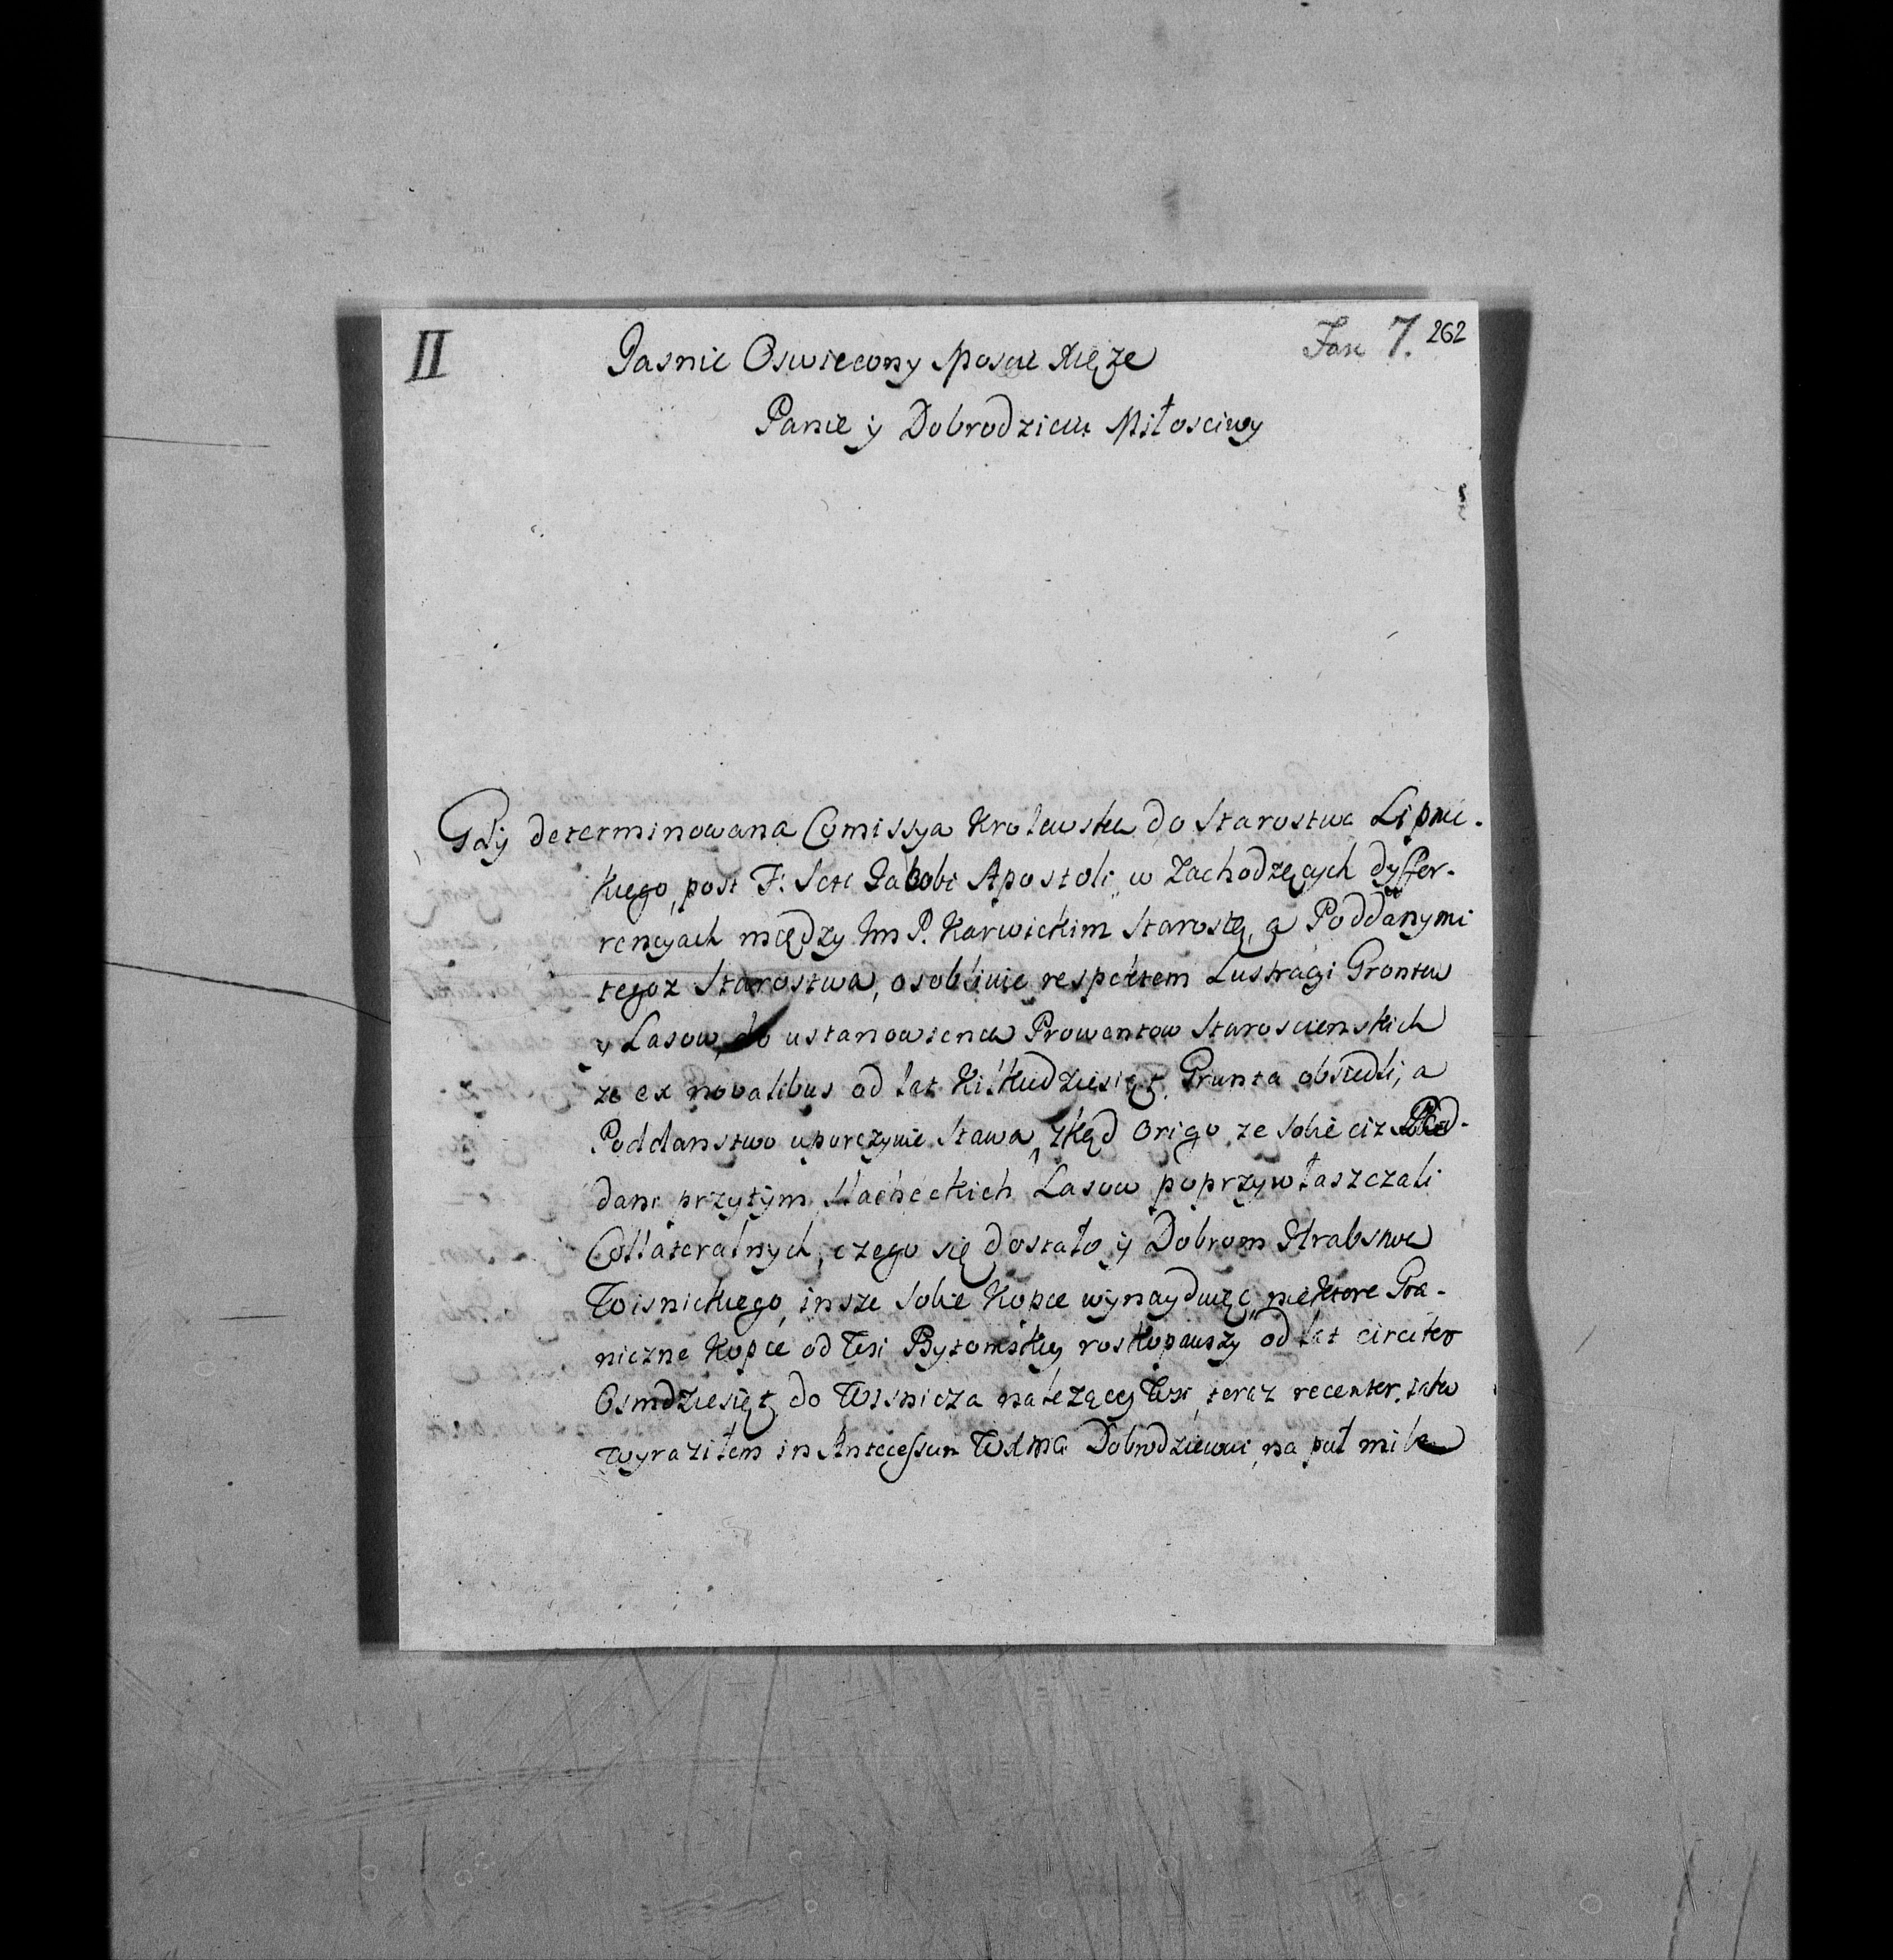 II
Fasc 7. 262
Jasnie Oswiecony Mosci Xięze
Panie ÿ Dobrodzieiu Miłosciwy
Gdÿ determinowana Comissya Krolewska do Starostwa Lipni-
kiego, post F: Scti Jakobi Apostoli, w zachodzących dyffer-
rencyach między Jm P. Karwickim Starostą, a Poddanymi
tegoz Starostwa, osobliwie respektem Lustracyi Grontow
y Lasow, do ustanowienia Prowentow Staroscienskich
ze ex novalibus od lat Kilkudziesiąt Grunta obsiedli, a
Poddanstwo uporczywie stawa, zkąd origo ze sobie ciz Pod-
dani przytym Slacheckich Lasow poprzywłaszczali
Collateralnych, czego się dostało ÿ Dobrom Hrabstwa
Wisnickiego, insze sobie Kopce wynayduięc, niektore Gra-
niczne Kopce od Wsi Bytomskiey roskopawszy od lat circiter
Osmdziesiąt do Wisnicza nalezącey Wsi, teraz recenter, iako
wyraziłem in Antecessum WXMci Dobrodzieiowi, na puł mile